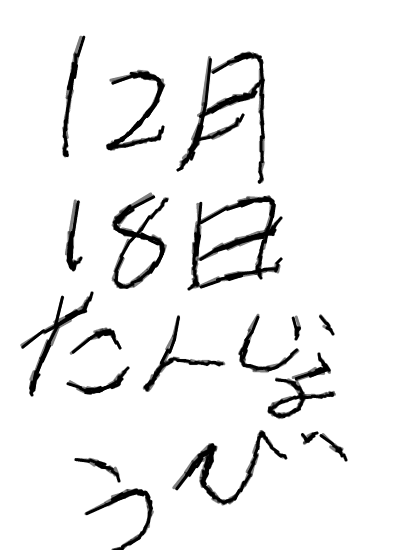 12月
18日
たんじょ
うび